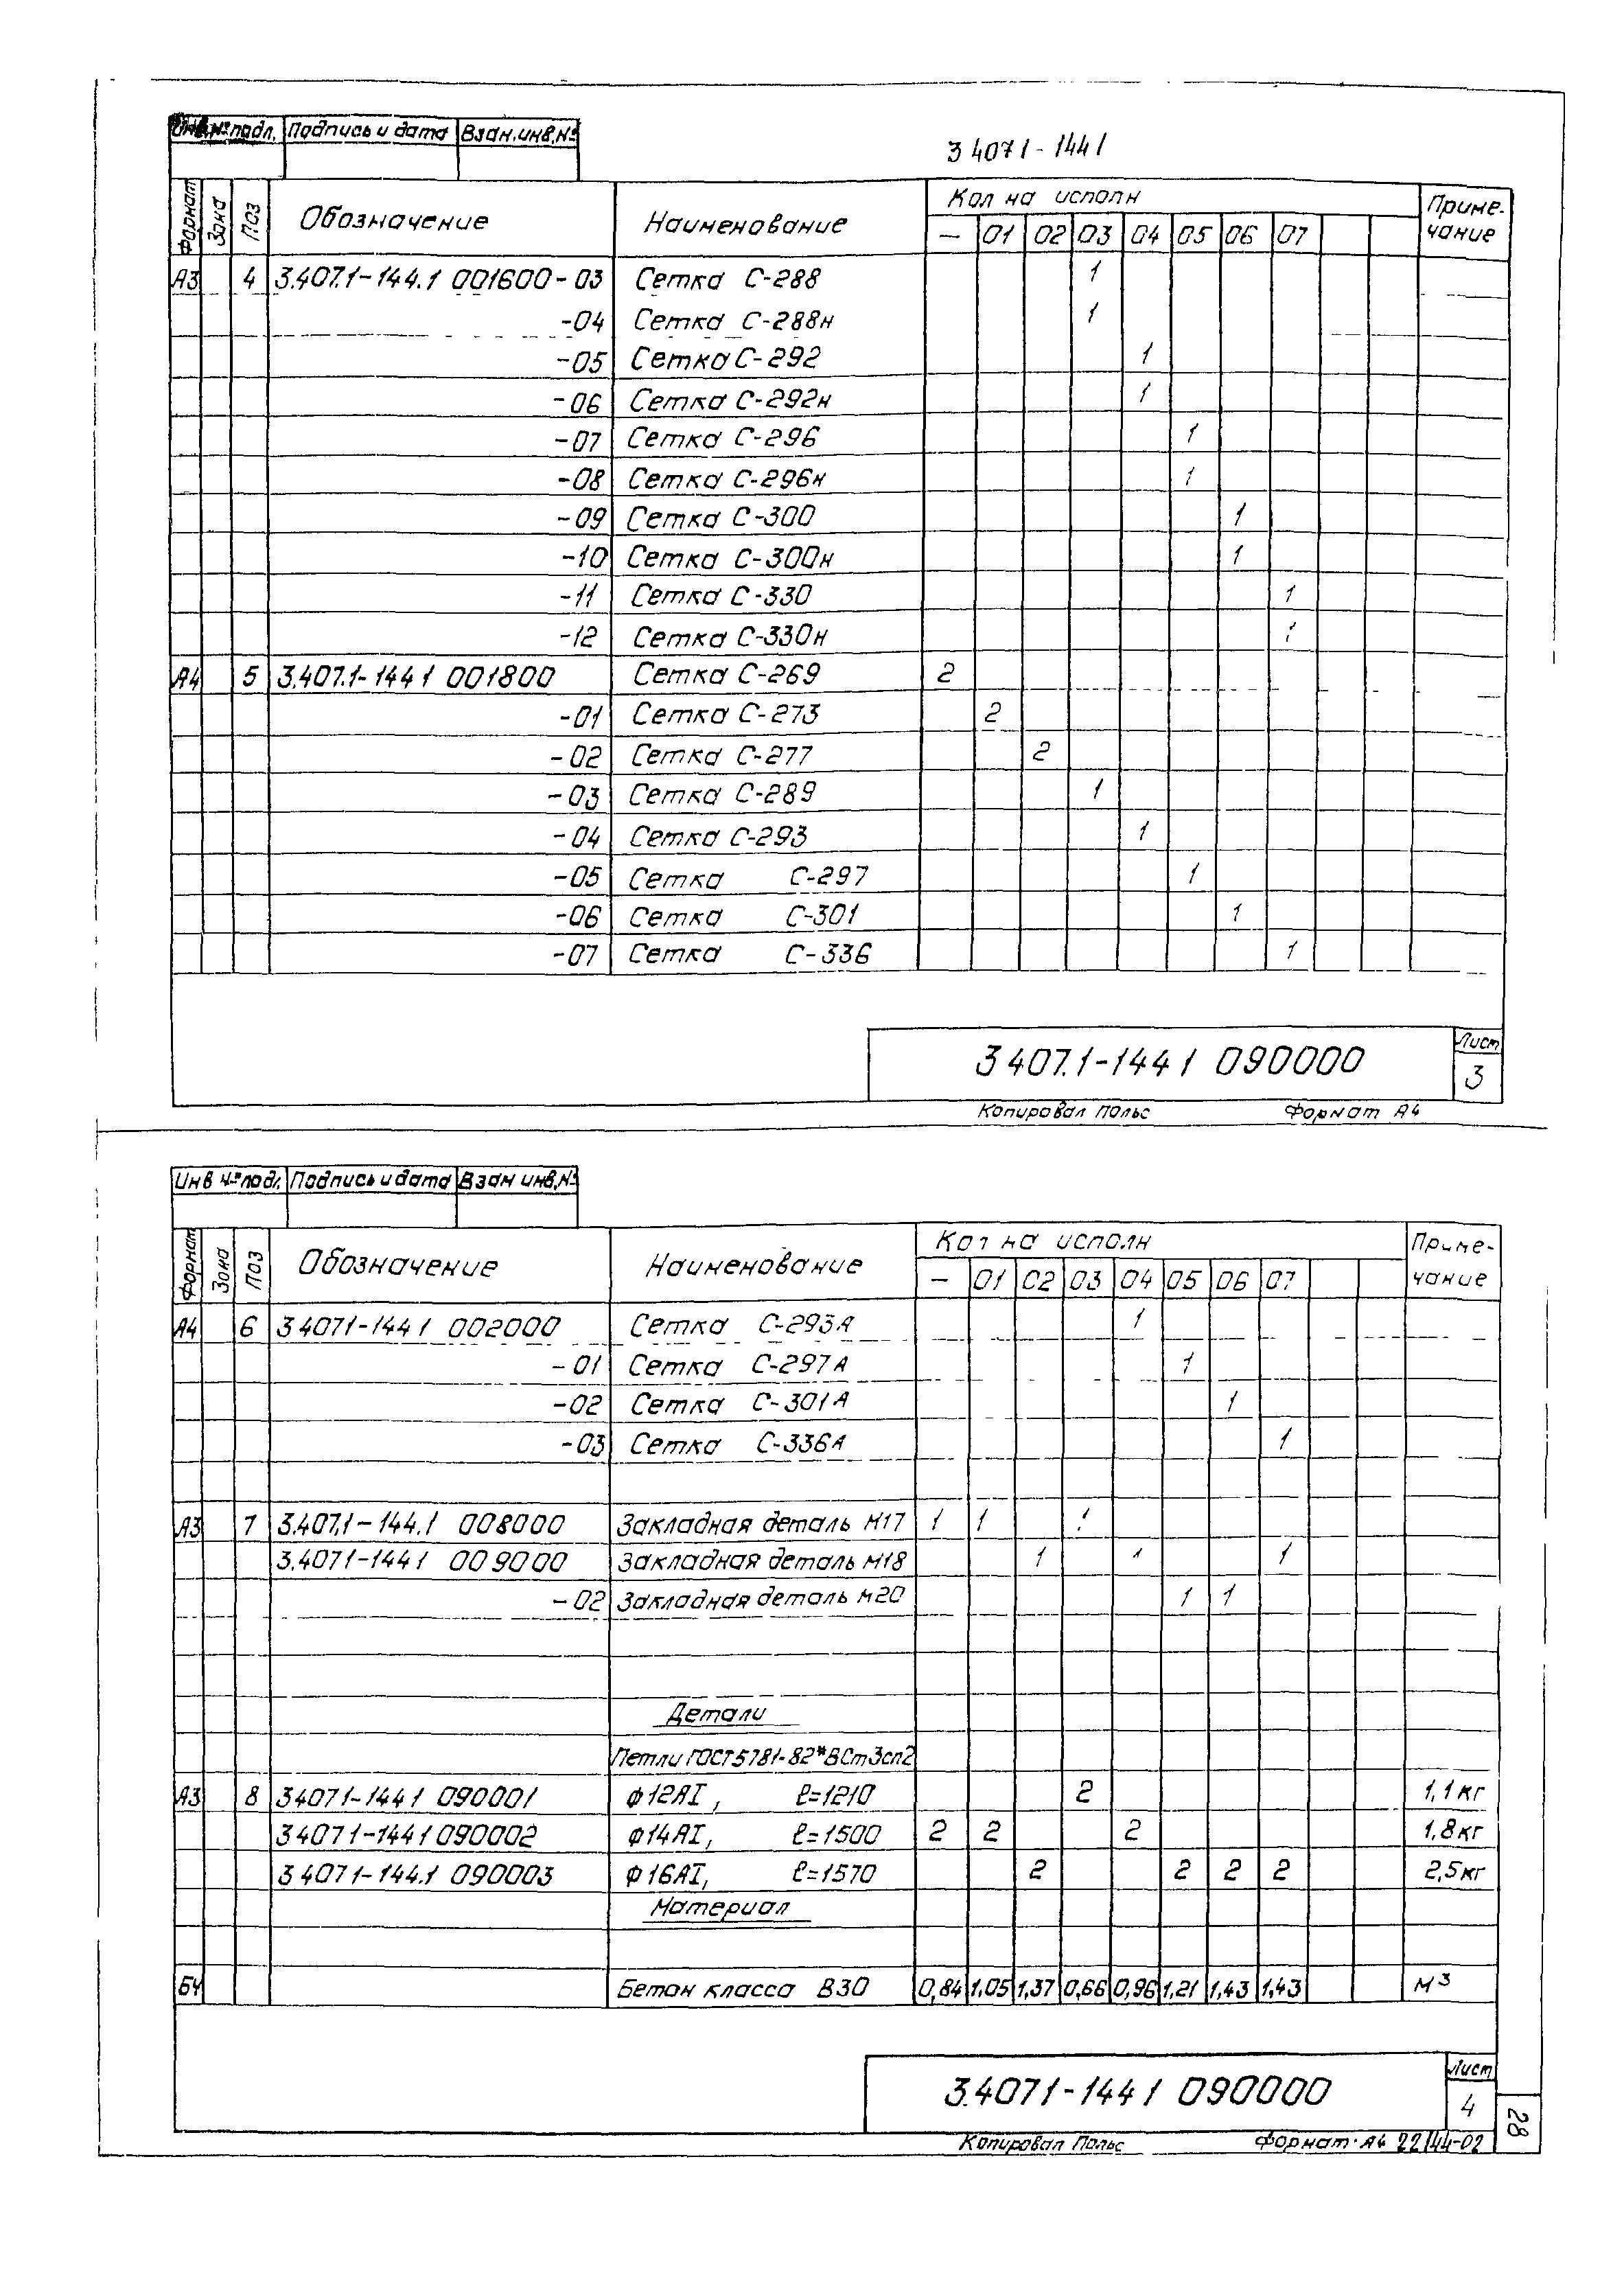 Инв.№подл. Подпись и дата Взам.инв.№
3 407 1-144 1
Формат Зона Поз Обозначение Наименование Кол на исполн Приме-
чание
— 01 02 03 04 05 06 07
А3 4 3.407.1-144.1 001600-03 Сетка С-288 1
-04 Сетка С-288н 1
-05 Сетка С-292 1
-06 Сетка С-292н 1
-07 Сетка С-296 1
-08 Сетка С-296н 1
-09 Сетка С-300 1
-10 Сетка С-300н 1
-11 Сетка С-330 1
-12 Сетка С-330н 1
А4 5 3.407.1-144 1 001800 Сетка С-269 2
-01 Сетка С-273 2
-02 Сетка С-277 2
-03 Сетка С-289 1
-04 Сетка С-293 1
-05 Сетка С-297 1
-06 Сетка С-301 1
-07 Сетка С-336 1
3 407.1-144 1 090000
Лист
3
Копировал Польс Формат А4
Инв №подл. Подпись и дата Взам инв.№
Формат Зона Поз Обозначение Наименование Кол на исполн Приме-
чание
— 01 02 03 04 05 06 07
А4 6 3 407 1-144 1 002000 Сетка С-293А 1
-01 Сетка С-297А 1
-02 Сетка С-301А 1
-03 Сетка С-336А 1
А3 7 3.407.1-144.1 008000 Закладная деталь М17 1 1 1
3.407 1-144 1 009000 Закладная деталь М18 1 1 1
-02 Закладная деталь М20 1 1
Детали
Петли ГОСТ 5781-82*ВСт3сп2
А3 8 3 407 1-144 1 090001 ф12АI, ℓ=1210 2 1,1 кг
3 407 1-144 1 090002 ф14АI, ℓ=1500 2 2 2 1,8 кг
3 407 1-144.1 090003 ф16АI, ℓ=1570 2 2 2 2 2,5 кг
Материал
БЧ Бетон класса В30 0,84 1,05 1,37 0,66 0,96 1,21 1,43 1,43 М³
3.407 1-144 1 090000
Лист
4
Копировал Польс Формат А4 22144-02
28